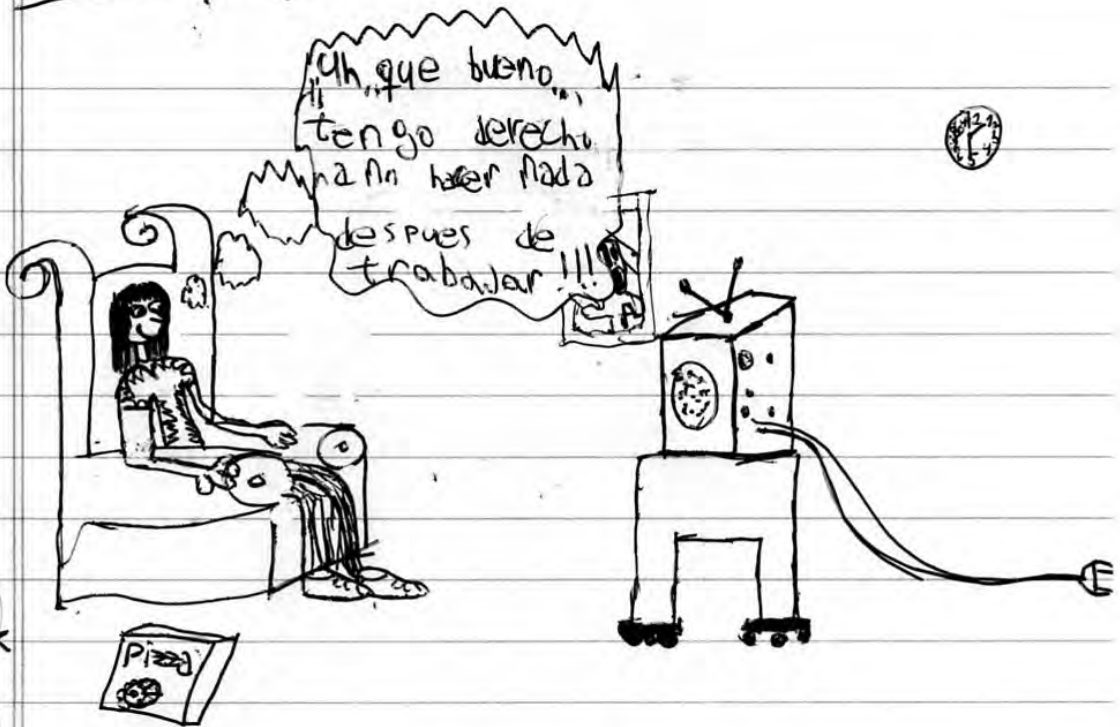 ¡¡Uh, que bueno...
tengo derecho
a no hacer nada
despues de
trabajar!!!
Pizza